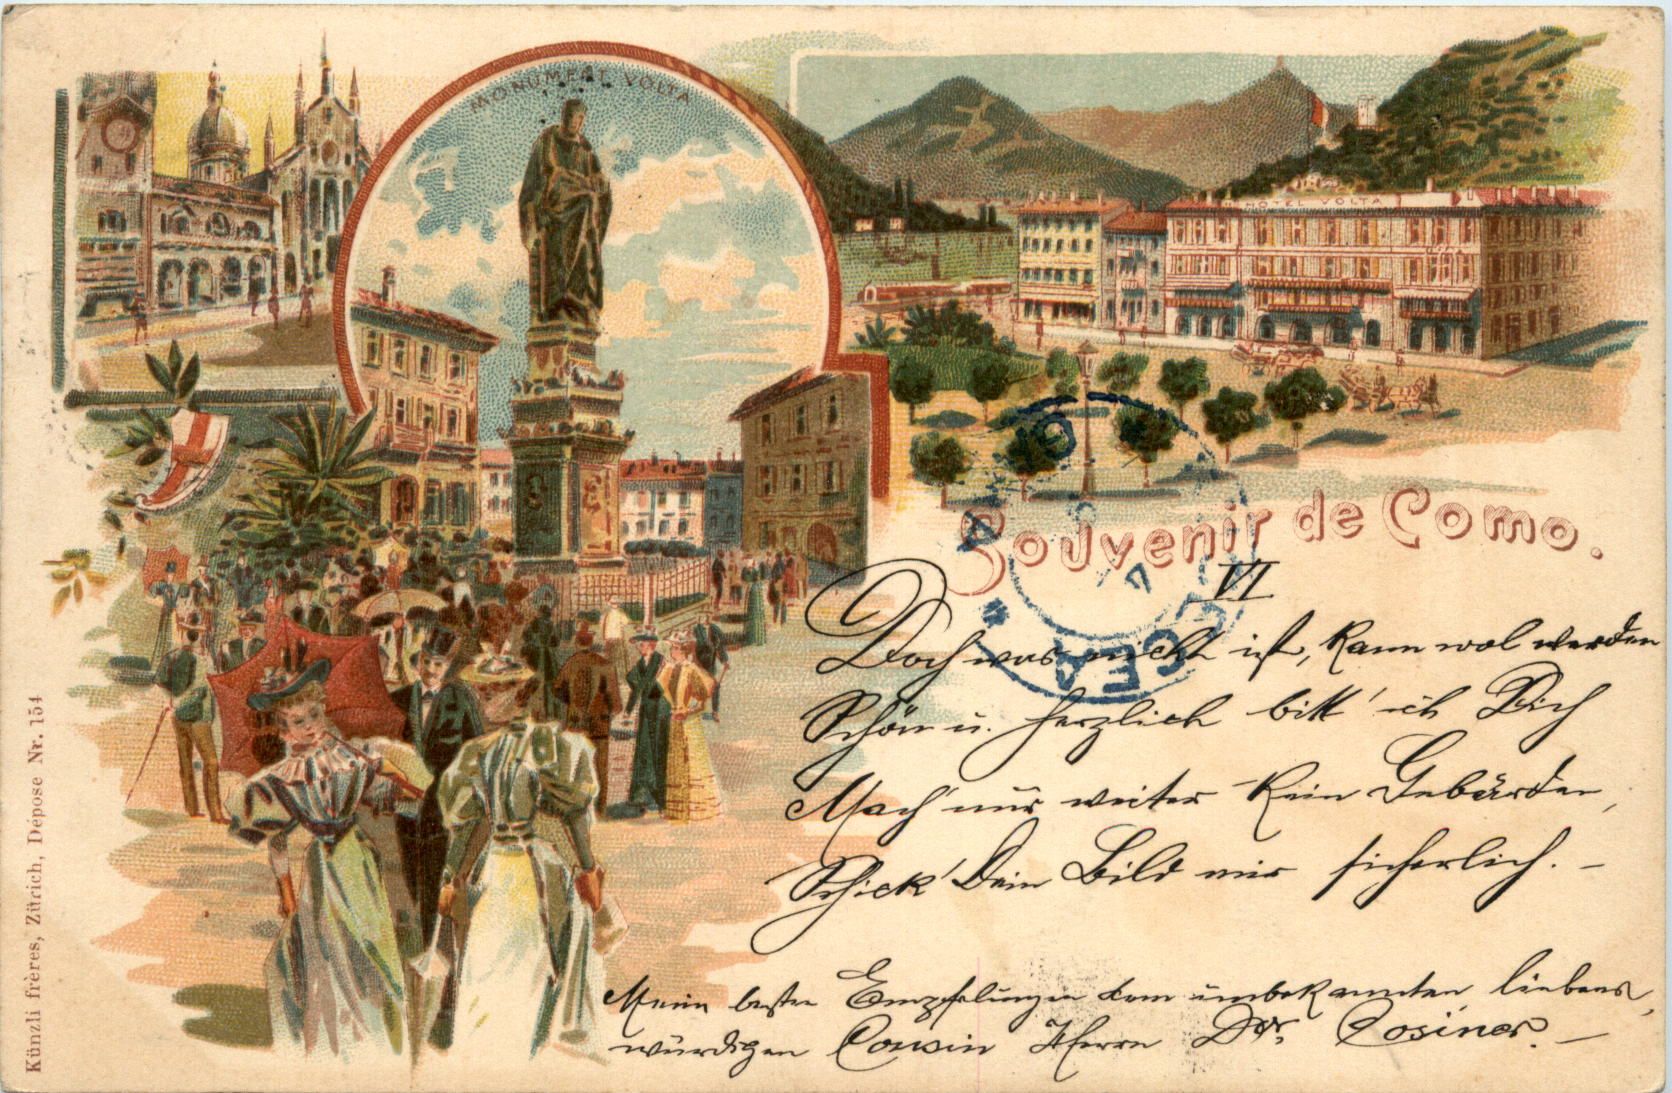 MONUMENT VOLTA
HOTEL VOLTA
Souvenir de Como.
VI
Doch was nicht ist, kann wol werden
Schön u. herzlich bitt' ich Dich
Mach' nur weiter kein Gebärden,
Schick' Dein Bild mir sicherlich. –
Meine besten Empfelungen dem unbekannten, liebens,
würdigen Cousin Herrn Dr.
Künzli frères, Zürich, Dépose Nr. 154